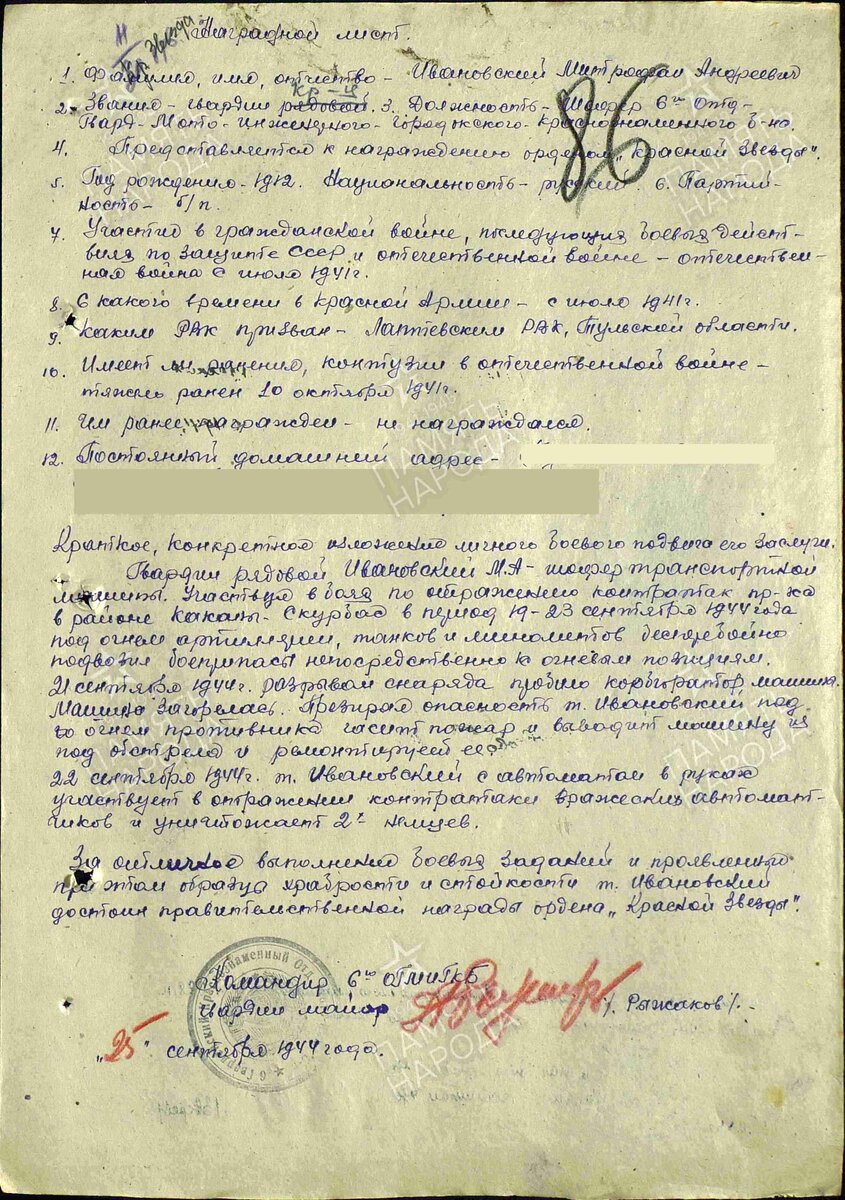 Кр. Звезда
Наградной лист.
1. Фамилия, имя, отчество - Ивановский Митрофан Андреевич
кр-ц
2. Звание - гвардии рядовой. 3. Должность - Шофер 6го Отд-
Гвард-Мото-инженерного-Городокского-Краснознаменного б-на.
86
4. Представляется к награждению орденом „Красной Звезды".
5. Год рождения - 1912. Национальность - русский. 6. Партий-
ность - б/п.
7. Участие в гражданской войне, последующих боевых дейст-
виях по защите СССР и отечественной войне - отечествен-
ная война с июля 1941г.
8. С какого времени в Красной Армии - с июля 1941г.
9. Каким РВК призван - Лаптевским РВК, Тульской области.
10. Имеет ли ранения, контузии в отечественной войне -
тяжело ранен 10 октября 1941г.
11. Чем ранее награжден - не награждался.
12. Постоянный домашний адрес -
Краткое, конкретное изложение личного боевого подвига его заслуги.
Гвардии рядовой, Ивановский М.А - шофер транспортной
машины. Участвуя в боях по отражению контратак пр-ка
в районе Каканы - Скурбас в период 19-23 сентября 1944 года
под огнем артиллерии, танков и минометов бесперебойно
подвозил боеприпасы непосредственно к огневым позициям.
21 сентября 1944г. разрывом снаряда пробило машины.
Машина загорелась. Презирая опасность т. Ивановский под
огнем противника гасит пожар и выводит машину из
под обстрела и ремонтирует ее.
22 сентября 1944г. т. Ивановский с автоматом в руках
участвует в отражении контратаки вражеских автомат-
чиков и уничтожает 2х немцев.
За отличное выполнение боевых заданий и проявленные
при этом образцы храбрости и стойкости т. Ивановский
достоин правительственной награды ордена „Красной Звезды".
Командир 6го ОГМИГКБ
Гвардии майор /. Рыжаков /.
„25" сентября 1944 года.
ПАМЯТЬ НАРОДА